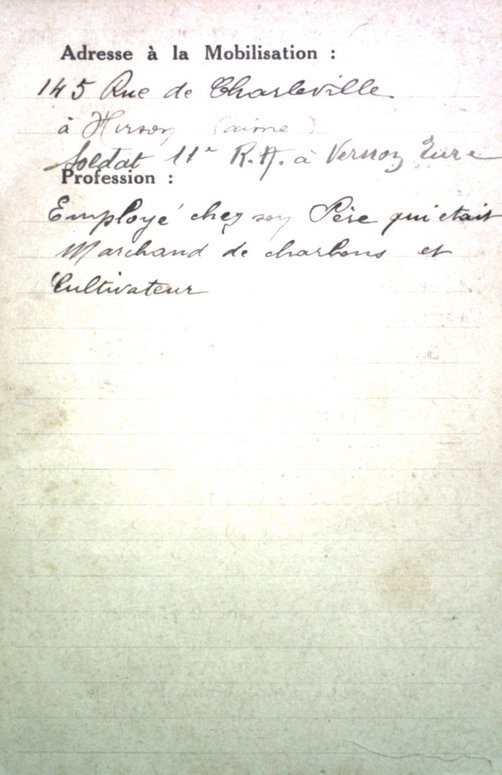 Adresse à la Mobilisation :
145 Rue de Charleville
à Hirson (aisne)
Soldat 11e R.A. à Vernon Eure
Profession :
Employé chez son Père qui était
Marchand de charbons et
Cultivateur